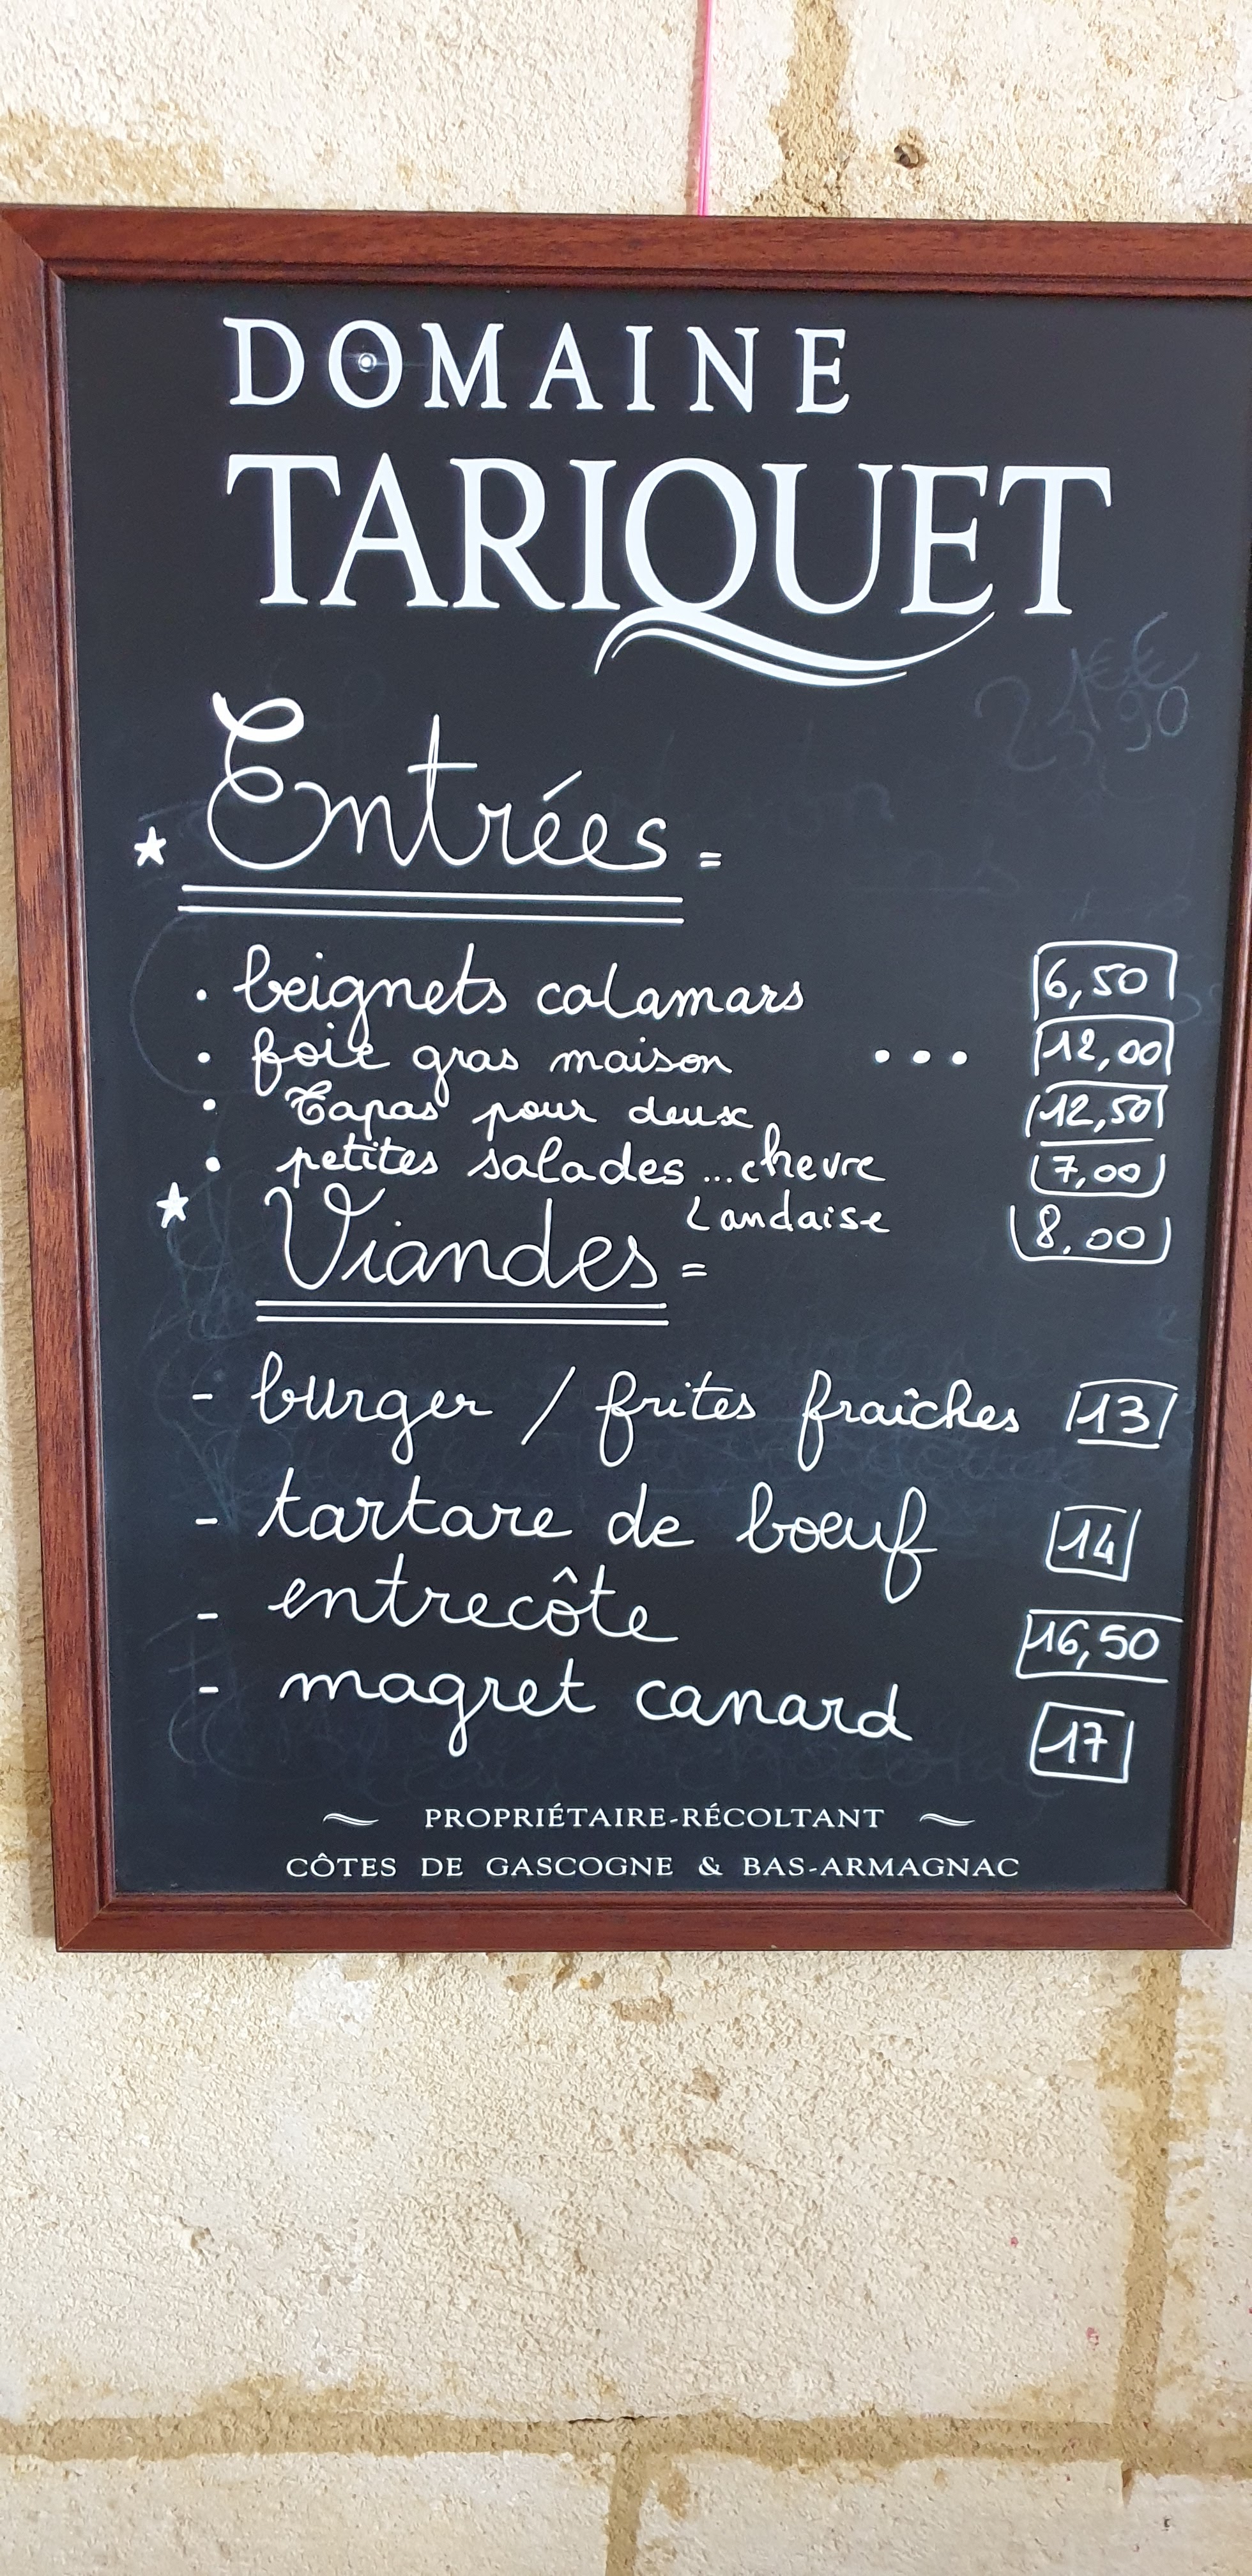 DOMAINE
TARIQUET
★ Entrées =
• beignets calamars 6,50
• foie gras maison ... 12,00
• Tapas pour deux 12,50
• petites salades ... chevre 7,00
Landaise 8,00
★ Viandes =
- burger / frites fraîches 13
- tartare de bœuf 14
- entrecôte 16,50
- magret canard 17
PROPRIÉTAIRE-RÉCOLTANT
CÔTES DE GASCOGNE & BAS-ARMAGNAC